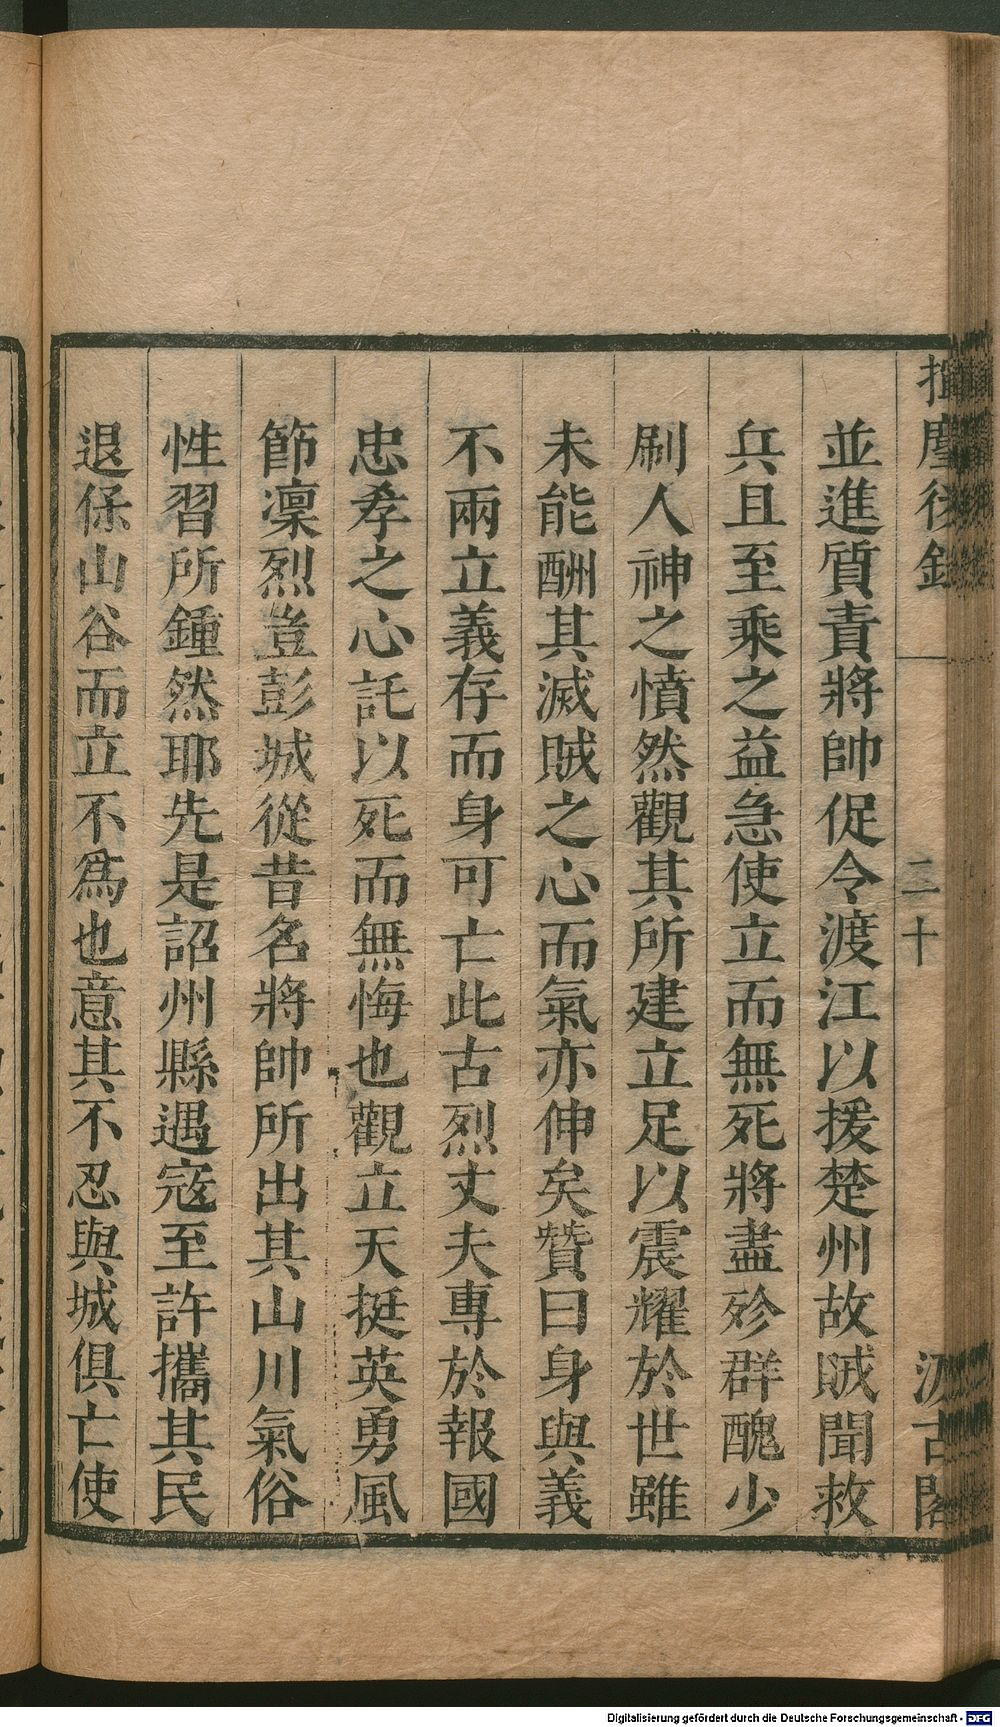 揮麈後錄
二十
汲古閣
並進質責將帥促令渡江以援楚州故賊聞救
兵且至乘之益急使立而無死將盡殄群醜少
刷人神之憤然觀其所建立足以震耀於世雖
未能酬其滅賊之心而氣亦伸矣贊曰身與義
不兩立義存而身可亡此古烈丈夫專於報國
忠孝之心託以死而無悔也觀立天挺英勇風
節凜烈豈彭城從昔名將帥所出其山川氣俗
性習所鍾然耶先是詔州縣遇寇至許攜其民
退保山谷而立不爲也意其不忍與城俱亡使
Digitalisierung gefördert durch die Deutsche Forschungsgemeinschaft - DFG